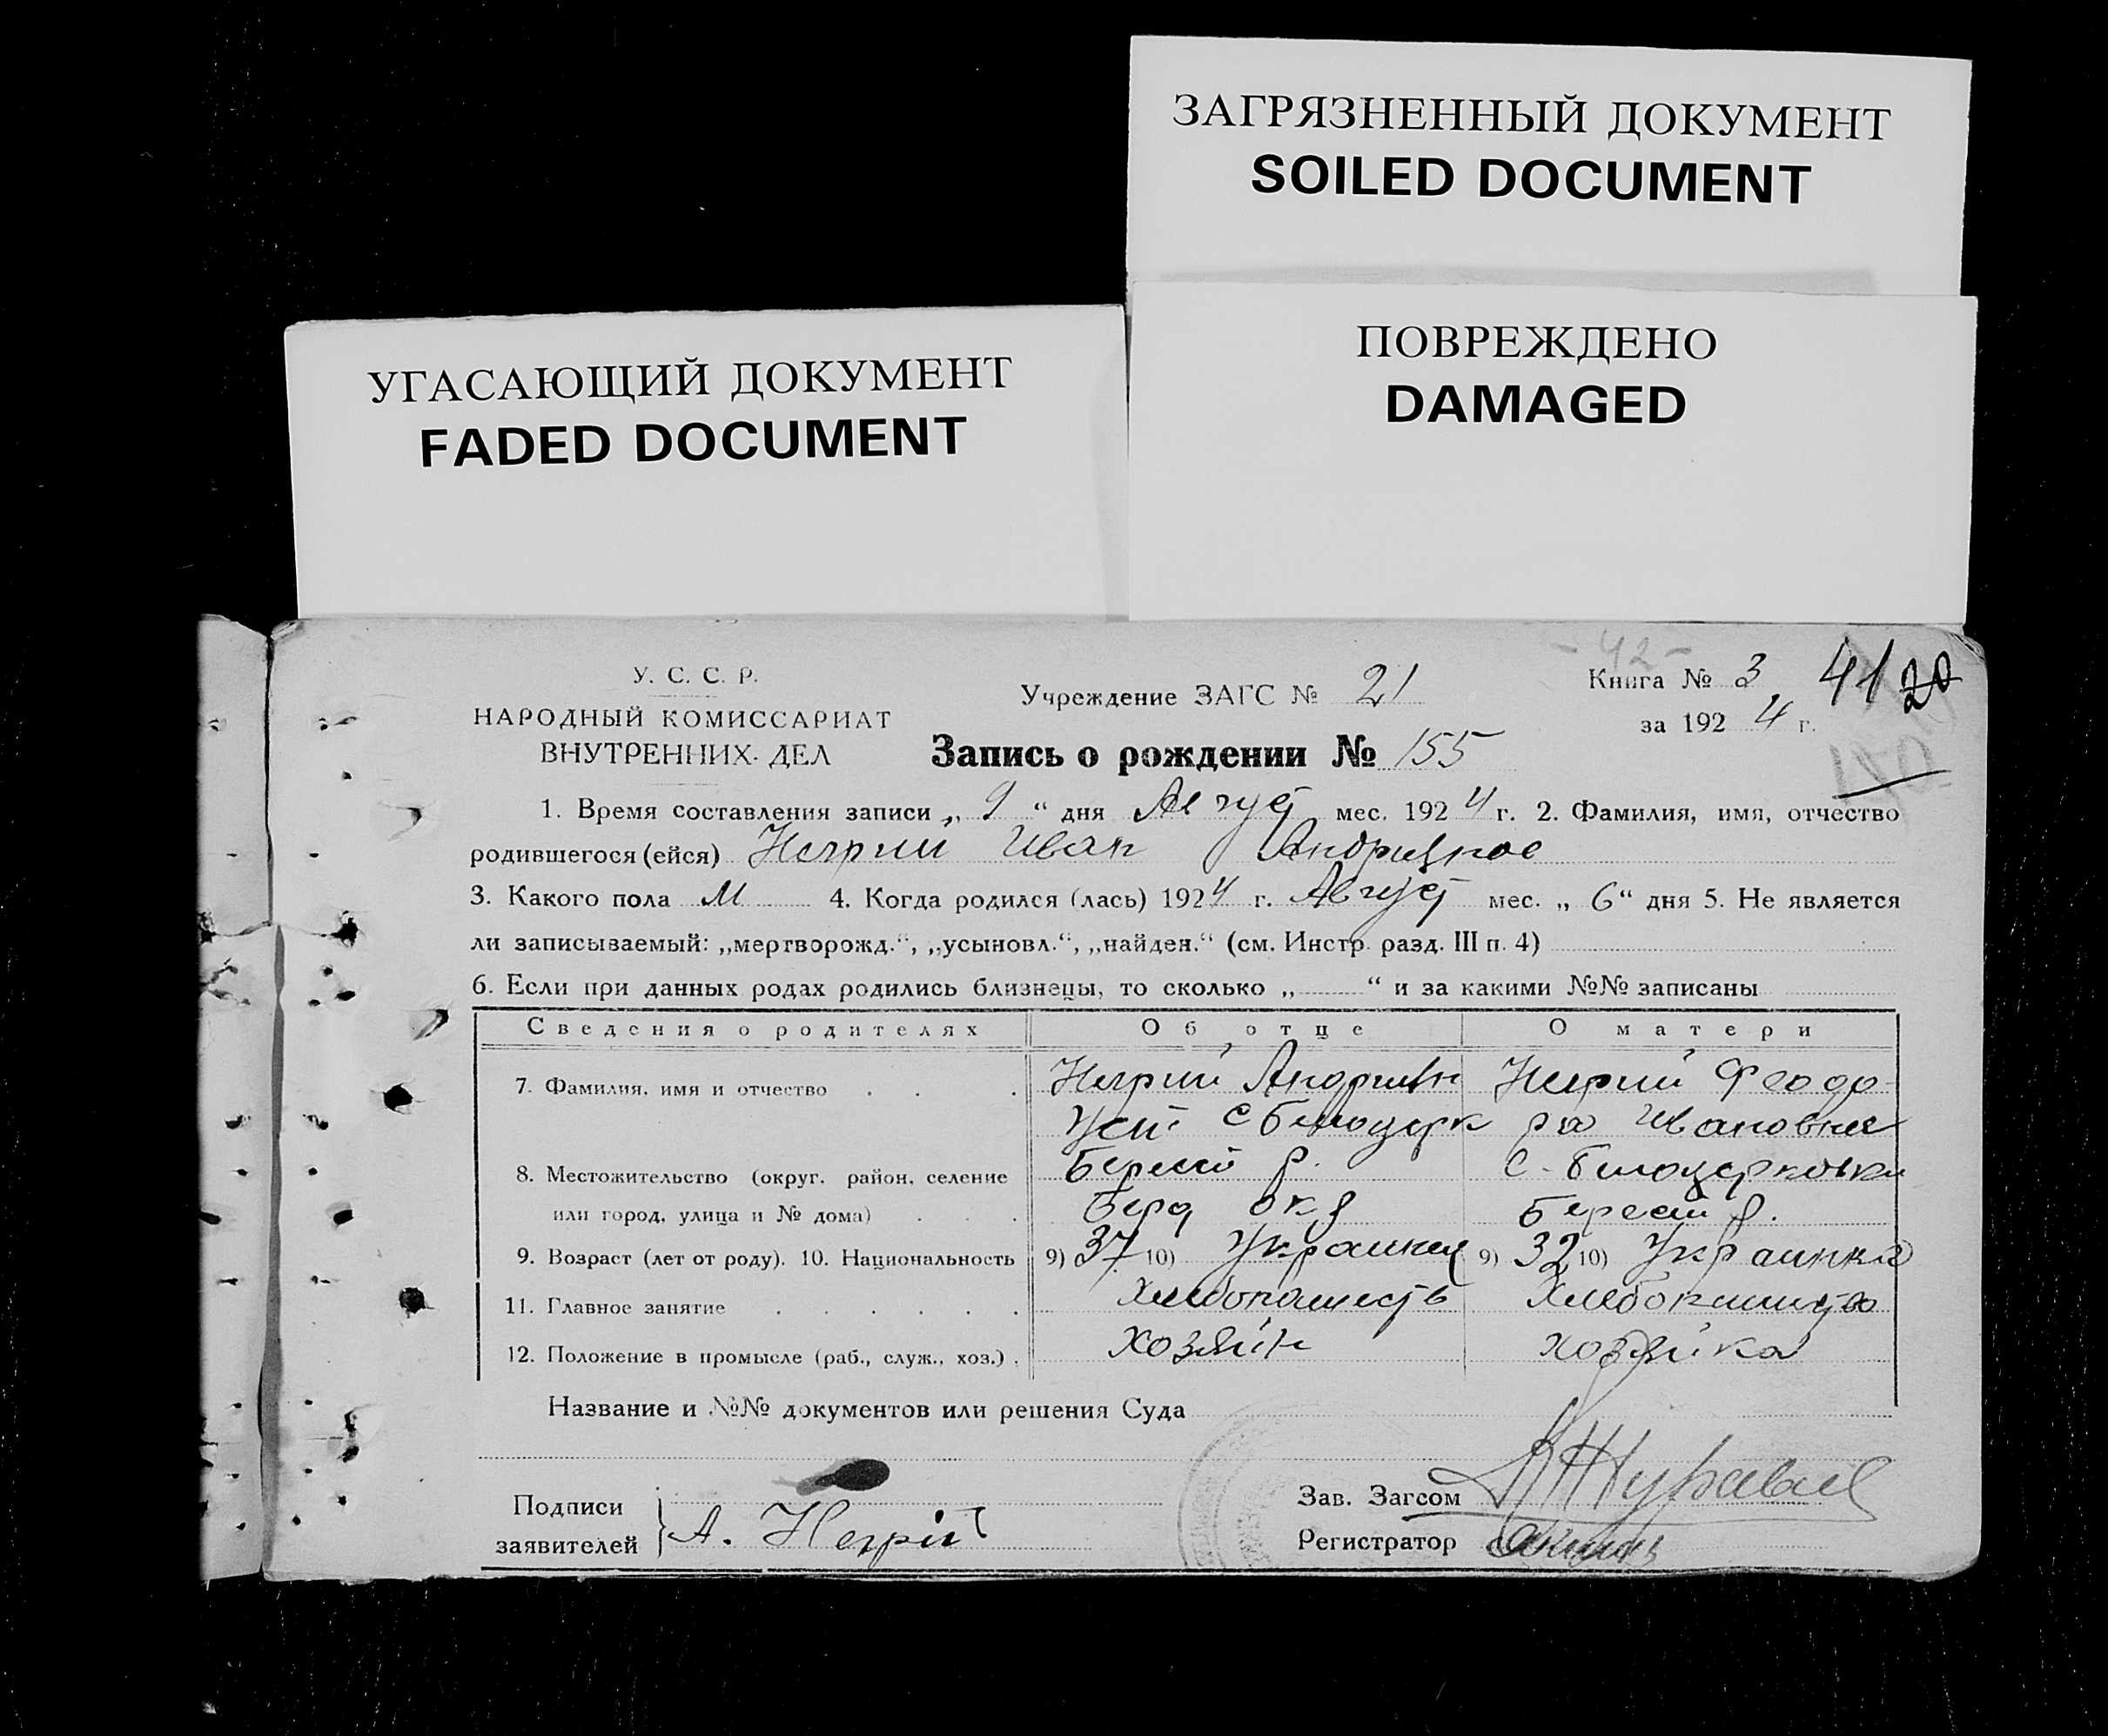 ЗАГРЯЗНЕННЫЙ ДОКУМЕНТ
SOILED DOCUMENT
ПОВРЕЖДЕНО
DAMAGED
УГАСАЮЩИЙ ДОКУМЕНТ
FADED DOCUMENT
- 42 -
У. С. С. Р.
НАРОДНЫЙ КОМИССАРИАТ
ВНУТРЕННИХ ДЕЛ
Учреждение ЗАГС № 21
Книга № 3 41 20
за 1924 г.
Запись о рождении № 155
1. Время составления записи „ 9 “ дня Август мес. 1924 г. 2. Фамилия, имя, отчество
родившегося (ейся) Негрий Иван
3. Какого пола М 4. Когда родился (лась) 1924 г. Август мес. „ 6 “ дня 5. Не является
ли записываемый: „мертворожд.“, „усыновл.“, „найден.“ (см. Инстр. разд. III п. 4)
6. Если при данных родах родились близнецы, то сколько „ “ и за какими №№ записаны
Сведения о родителях Об отце О матери
7. Фамилия, имя и отчество Негрий Негрий Феодо-
ра Ивановна
8. Местожительство (округ, район, селение Берест р. с. Білоцерковка
или город, улица и № дома) Берд окр Берест р.
9. Возраст (лет от роду). 10. Национальность 9) 37 10) Украинец 9) 32 10) Украинка
11. Главное занятие Хлебопашеств Хлебопашество
12. Положение в промысле (раб., служ., хоз.) хозяин хозяйка
Название и №№ документов или решения Суда
Подписи
заявителей } А. Негрій
Зав. Загсом
Регистратор